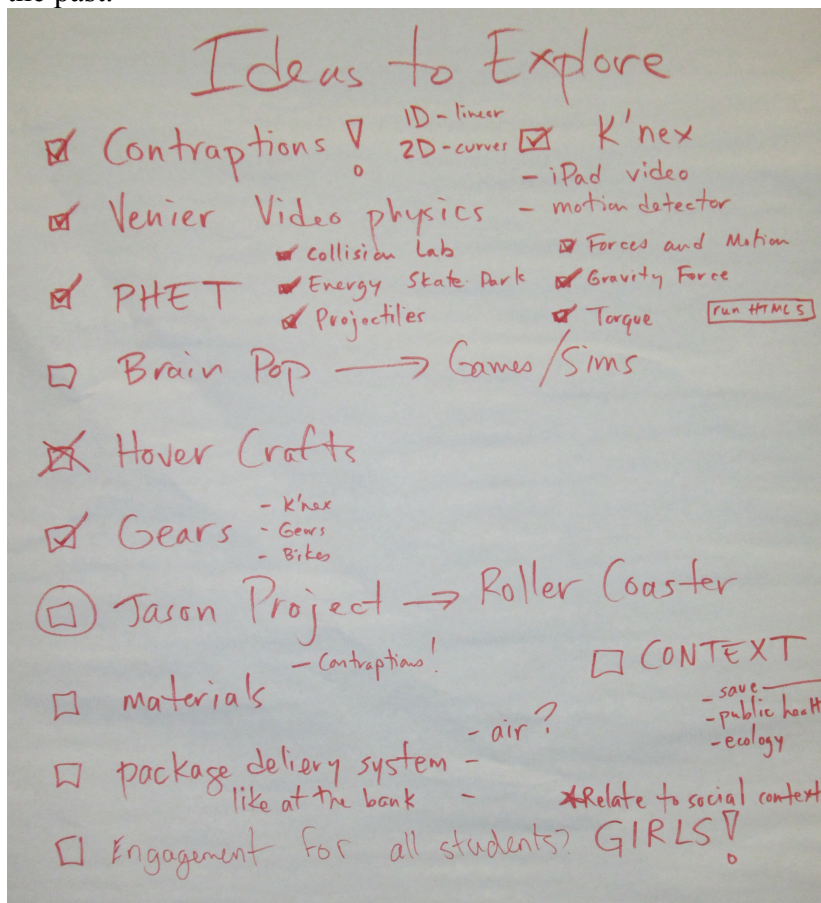 the past.
Ideas to Explore
Contraptions! 1D - linear
2D - curves
K'nex
- iPad video
- motion detector
Venier Video physics
PHET
Collision Lab
Energy Skate Park
Projectiles
Forces and Motion
Gravity Force
Torque
run HTML5
Brain Pop → Games/Sims
Hover Crafts
Gears
- K'nex
- Gears
- Bikes
Jason Project → Roller Coaster
- Contraptions!
CONTEXT
- save
- public healt
- ecology
materials
package deliery system -
like at the bank -
- air?
*Relate to social context
Engagement for all students? GIRLS!